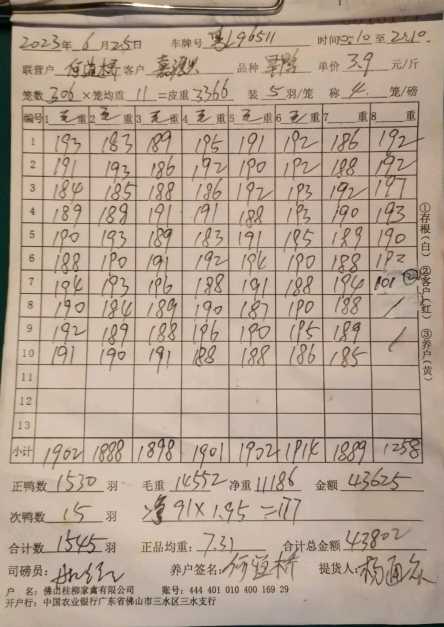 2023年 6月25日 车牌号 粤L96511 时间05:10 至 25:10
联营户 何道桥 客户 品种 单价 3.9 元/斤
笼数 306 ×笼均重 11 =皮重 3366 装 5 羽/笼 称 4 笼/磅
编号 1 毛 重 2 毛 重 3 毛 重 4 毛 重 5 毛 重 6 毛 重 7 重 8 重
1 193 183 189 195 191 192 186 192
2 191 193 186 192 190 192 188 192
3 184 185 188 186 192 193 192 197
4 189 189 191 191 188 193 190 193
5 190 193 189 183 191 195 189 190
6 188 190 191 192 194 190 188 192
7 194 193 196 188 191 188 194 101 ②
8 190 184 189 190 187 190 188 /
9 192 189 188 196 190 195 189 /
10 191 190 191 188 188 186 185
11
12
13
小计 1902 1888 1898 1901 1902 1914 1889 1258
①存根(白) ②客户(红) ③养户(黄)
正鸭数 1530 羽 毛重 14552 净重 11186 金额 43625
次鸭数 15 羽 净 91×1.95=177
合计数 1545 羽 正品均重: 7.31 合计总金额 43802
司磅员: 养户签名: 何道桥 提货人: 杨通众
户 名: 佛山桂柳家禽有限公司 账号: 444 401 010 400 169 29
开户行: 中国农业银行广东省佛山市三水区三水支行